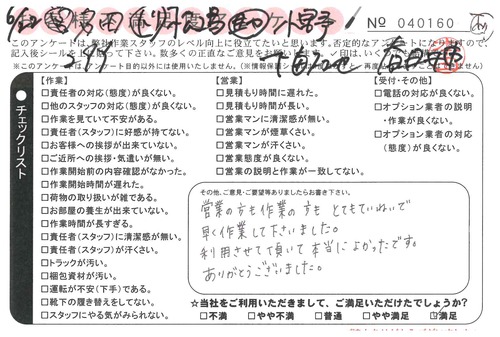 No 040160
このアンケートは、弊社作業スタッフのレベル向上に役立てたいと思います。否定的なアンケートになりますので、
※このアンケートは、アンケート目的以外には使用いたしません。
チェックリスト
【作業】
□責任者の対応(態度)が良くない。
□他のスタッフの対応(態度)が良くない。
□作業を見ていて不安がある。
□責任者(スタッフ)に好感が持てない。
□お客様への挨拶が出来ていない。
□ご近所への挨拶・気遣いが無い。
□作業開始前の内容確認がなかった。
□作業開始時間が遅れた。
□荷物の取り扱いが雑である。
□お部屋の養生が出来ていない。
□作業時間が長すぎる。
□責任者(スタッフ)に清潔感が無い。
□責任者(スタッフ)が汗くさい。
□トラックが汚い。
□梱包資材が汚い。
□運転が不安(下手)である。
□靴下の履き替えをしてない。
□スタッフにやる気がみられない。
【営業】
□見積もり時間に遅れた。
□見積もり時間が長い。
□営業マンに清潔感が無い。
□営業マンが煙草くさい。
□営業マンが汗くさい。
□営業態度が良くない。
□営業の説明と作業が一致してない。
【受付・その他】
□電話の対応が良くない。
□オプション業者の説明
・作業が良くない。
□オプション業者の対応
(態度)が良くない。
その他、ご意見・ご要望等ありましたらお書き下さい。
営業の方も作業の方も とてもていねいで
早く作業して下さいました。
利用させて頂いて本当によかったです。
ありがとうございました。
☆当社をご利用いただきまして、ご満足いただけたでしょうか?
□不満 □やや不満 □普通 □やや満足 ☑満足